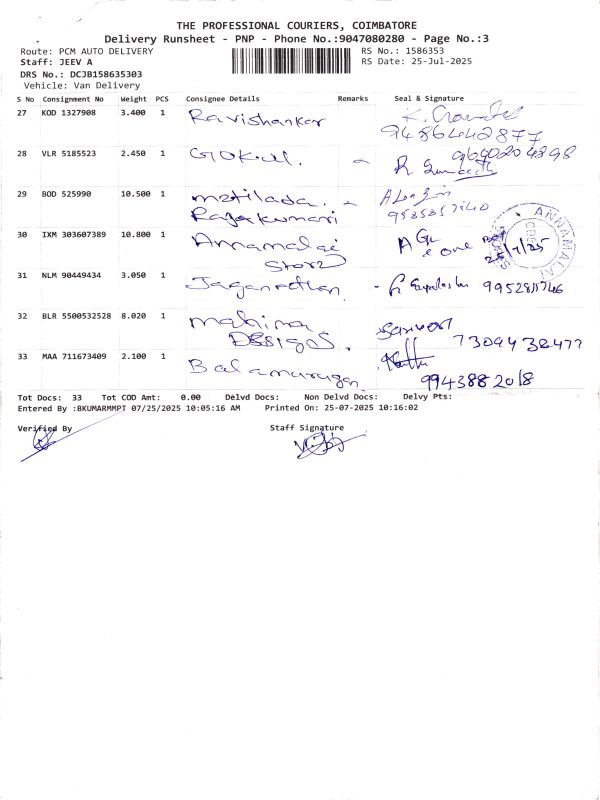 THE PROFESSIONAL COURIERS, COIMBATORE
Delivery Runsheet - PNP - Phone No.:9047080280 - Page No.:3
Route: PCM AUTO DELIVERY RS No.: 1586353
Staff: JEEV A RS Date: 25-Jul-2025
DRS No.: DCJB158635303
Vehicle: Van Delivery
S No Consignment No Weight PCS Consignee Details Remarks Seal & Signature
27 KOD 1327908 3.400 1 Ravishankar K.
9486442877
28 VLR 5185523 2.450 1 GOKul. 9690204898
29 BOD 525990 10.500 1 motilada
Rajakumari
30 IXM 303607389 10.800 1 Annamalai
Storz
ANNAMALAI
25/7/25
31 NLM 90449434 3.050 1 Jaganathan
32 BLR 5500532528 8.020 1 mahima
DESSIgnS. 7309438477
33 MAA 711673409 2.100 1 Balamurugan
9943882018
Tot Docs: 33 Tot COD Amt: 0.00 Delvd Docs: Non Delvd Docs: Delvy Pts:
Entered By :BKUMARMMPT 07/25/2025 10:05:16 AM Printed On: 25-07-2025 10:16:02
Verified By Staff Signature